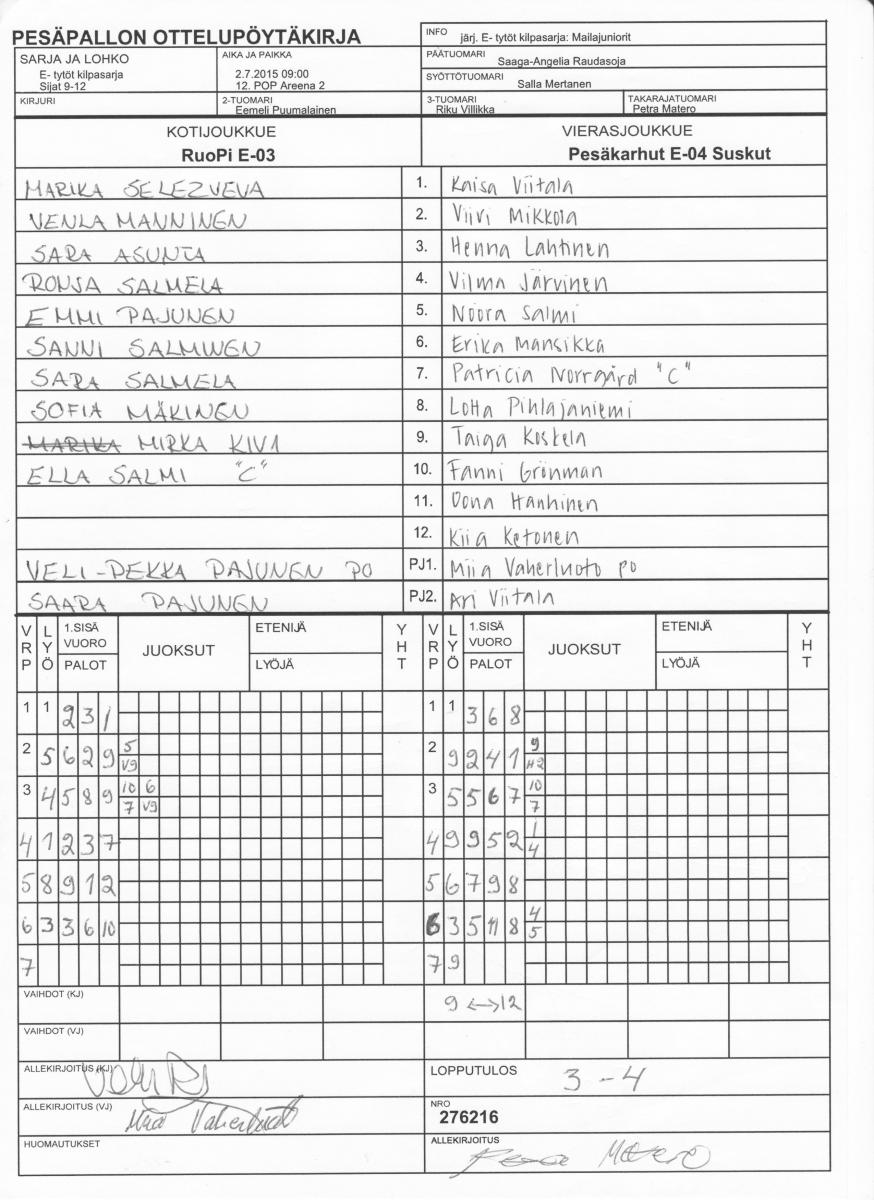 PESÄPALLON OTTELUPÖYTÄKIRJA
INFO järj. E- tytöt kilpasarja: Mailajuniorit
SARJA JA LOHKO
E- tytöt kilpasarja
Sijat 9-12
AIKA JA PAIKKA
2.7.2015 09:00
12. POP Areena 2
PÄÄTUOMARI
Saaga-Angelia Raudasoja
SYÖTTÖTUOMARI
Salla Mertanen
KIRJURI
2-TUOMARI
Eemeli Puumalainen
3-TUOMARI
Riku Villikka
TAKARAJATUOMARI
Petra Matero
KOTIJOUKKUE VIERASJOUKKUE
RuoPi E-03 Pesäkarhut E-04 Suskut
MARIKA SELEZVEVA 1. Kaisa Viitala
VENLA MANNINEN 2. Viivi Mikkola
SARA ASUNTA 3. Henna Lahtinen
RONJA SALMELA 4. Vilma Järvinen
EMMI PAJUNEN 5. Noora Salmi
SANNI SALMINEN 6. Erika Mansikka
SARA SALMELA 7. Patricia Norrgård "C"
SOFIA MÄKINEN 8. Lotta Pihlajaniemi
MARIKA MIRKA KIVI 9. Taiga Koskela
ELLA SALMI "C" 10. Fanni Grönman
11. Oona Hanhinen
12. Kiia Ketonen
VELI-PEKKA PAJUNEN PO PJ1. Miia Vaherluoto PO
SAARA PAJUNEN PJ2. Ari Viitala
VRP LYÖ 1.SISÄ VUORO PALOT JUOKSUT ETENIJÄ LYÖJÄ YHT VRP LYÖ 1.SISÄ VUORO PALOT JUOKSUT ETENIJÄ LYÖJÄ YHT
1 1 2 3 1 1 1 3 6 8
2 5 6 2 9 5 V9 2 9 2 4 1 9 H2
3 4 5 8 9 10 6 7 V9 3 5 5 6 7 10 7
4 1 2 3 7 4 9 9 5 2 1 4
5 8 9 1 2 5 6 7 9 8
6 3 3 6 10 6 3 5 11 8 4 5
7 7 9
VAIHDOT (KJ) 9 <-> 12
VAIHDOT (VJ)
ALLEKIRJOITUS (KJ)
LOPPUTULOS 3 - 4
ALLEKIRJOITUS (VJ) Miia Vaherluoto
NRO
276216
HUOMAUTUKSET
ALLEKIRJOITUS
Matero